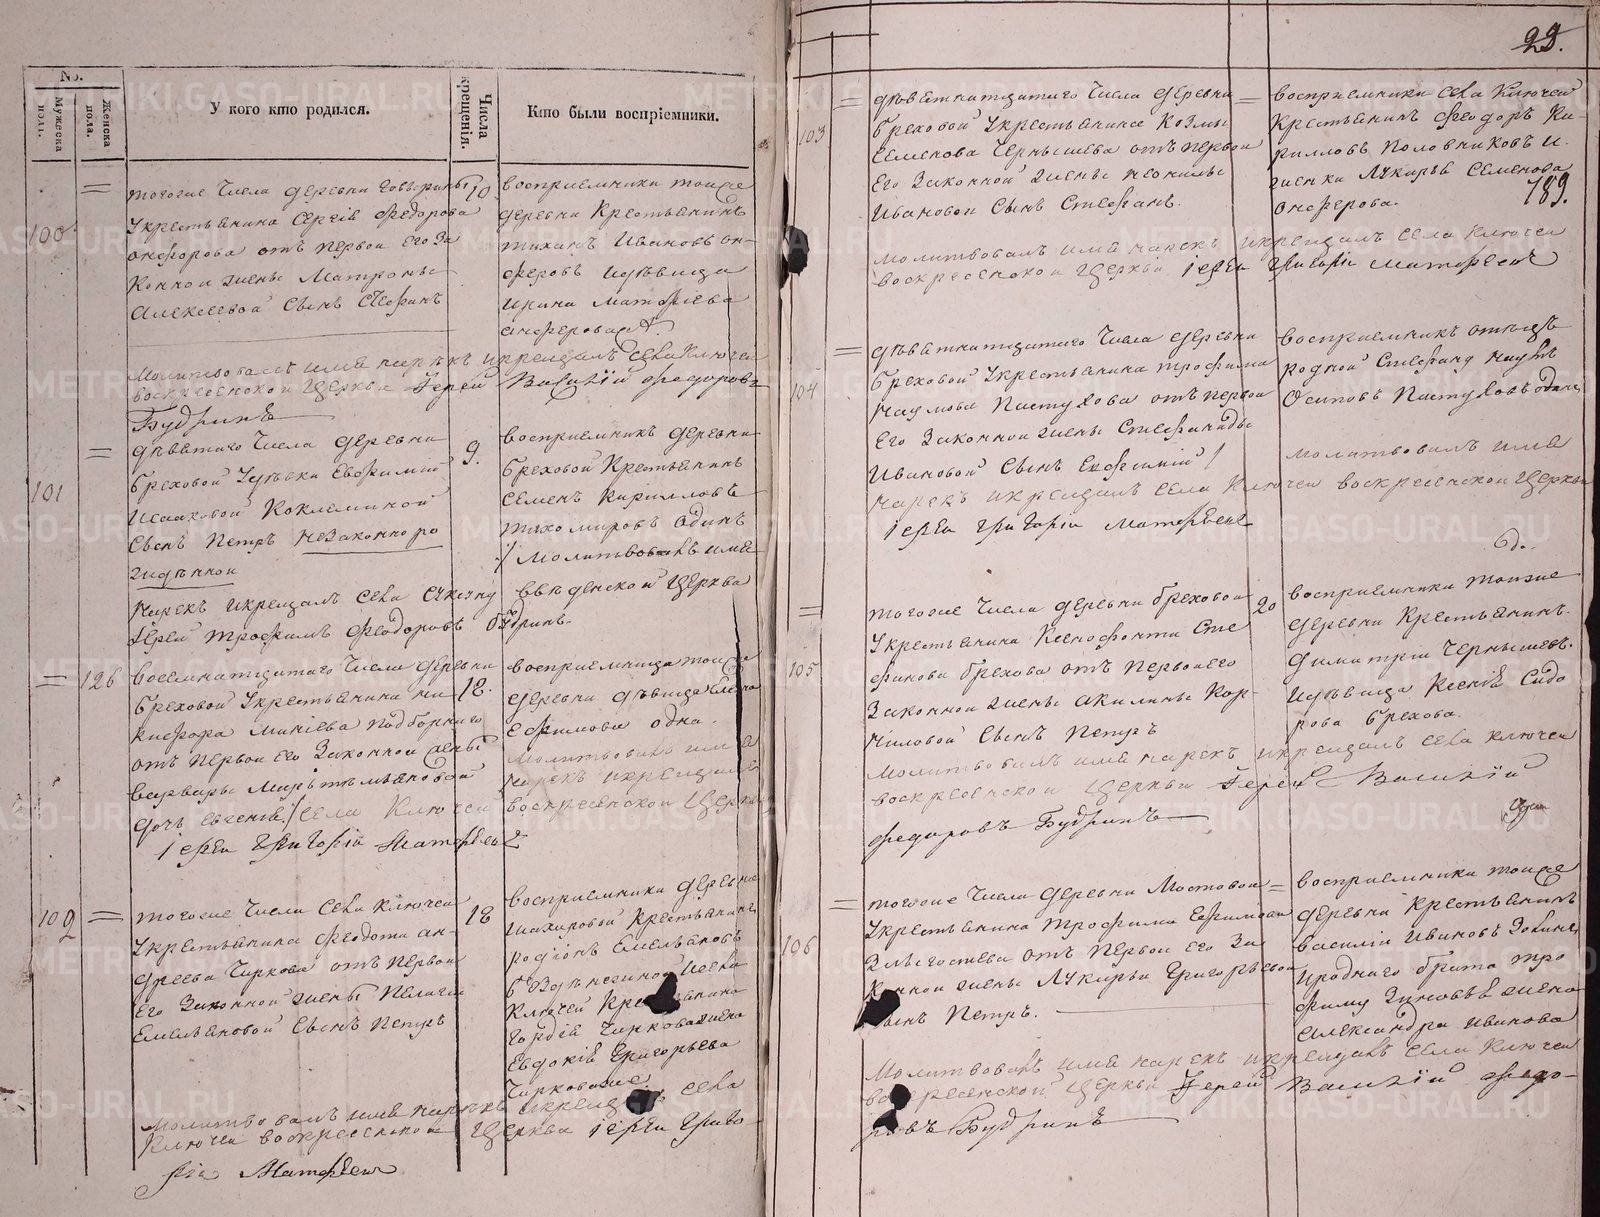 No.
Мужеска полъ.
Женска пола.
У кого кто родился.
Числа крещенія.
Кто были воспріемники.
100
тогоже Числа деревни
укрестьянина Сергія Федорова
анферова отъ первой его За
конной жены Матроны
Алексеевой Сынъ Стефанъ
10.
восприемники тойже
деревни Крестьянинъ
Ивановъ ан-
феровъ идѣвица
ирина Матфіева
анферова
молитвовалъ имя нарекъ икрещалъ села Ключей
воскресенской Церкви Іерей Василій Федоровъ
Будринъ
101
девятаго Числа деревни
бреховой удѣвки Евфиміи
Исааковой
Сынъ Петръ незаконно ро
жденной
9.
восприемникъ деревни
бреховой Крестьянинъ
Семенъ Кирилловъ
тихомировъ одинъ
молитвовалъ имя
нарекъ икрещалъ села введенской Церкви
Іерей Трофимъ Феодоровъ будринъ.
126
восемнатцатаго Числа деревни
бреховой укрестьянина ни-
кифора Подборнаго
отъ первой его Законной жены
варвары
дочь Евгенія
18.
восприемница тойже
деревни дѣвица Елена
Ефимова одна.
молитвовалъ имя
нарекъ икрещалъ
села Ключей воскресенской Церкви
іерей Григорій Матфеевъ
102
тогоже Числа села Ключей
укрестьянина Феодота ан-
дреева Чиркова отъ первой
его Законной жены Пелагеи
Емельяновой Сынъ Петръ
18
восприемники деревни
Крестьянинъ
родіонъ Емельяновъ
села
Ключей
гордія Чиркова жена
Евдокія Григорьева
Чиркова
молитвовалъ имя нарекъ икрещалъ села
Ключей воскресенской Церкви іерей Григо
рій Матфеевъ
29.
189.
103
девятнатцатаго Числа деревни
бреховой укрестьянина Козмы
Семенова Чернышева отъ первой
его Законной жены неонилы
Ивановой Сынъ Стефанъ.
восприемники села Ключей
Крестьянинъ Феодоръ Ки-
рилловъ Половниковъ и
женка Лукерья Семенова
анферова.
молитвовалъ имя нарекъ икрещалъ села Ключей
воскресенской Церкви іерей Григорій Матфеевъ
104
девятнатцатаго Числа деревни
бреховой укрестьянина трофима
Наумова Пастухова отъ первой
его Законной жены Стефаниды
Ивановой Сынъ Евфимій
восприемникъ отъецъ
родной Наумъ
Осиповъ Пастуховъ одинъ
молитвовалъ имя
нарекъ икрещалъ села Ключей воскресенской Церкви
іерей Григорій Матфеевъ
105
тогоже Числа деревни бреховой
укрестьянина Ксенофонта Сте
фанова брехова отъ первой его
Законной жены акилины Кор-
ниловой Сынъ Петръ
20
восприемники тойже
деревни Крестьянинъ
димитрій Чернышевъ.
идѣвица Ксенія Сидо
рова брехова.
молитвовалъ имя нарекъ икрещалъ села Ключей
воскресенской Церкви Іерей Василій
Федоровъ Будринъ
106
тогоже Числа деревни Мостовой
укрестьянина трофима Ефимова
Злыгостева отъ первой его За
конной жены Лукерьи Григорьевой
Сынъ Петръ.
восприемники тойже
деревни Крестьянинъ
василій Ивановъ
иродного брата тро
фима Зиновьева жена
александра Иванова
молитвовалъ имя нарекъ икрещалъ села Ключей
воскресенской Церкви Іерей Василій Федо-
ровъ Будринъ
METRIKI.GASO-URAL.RU